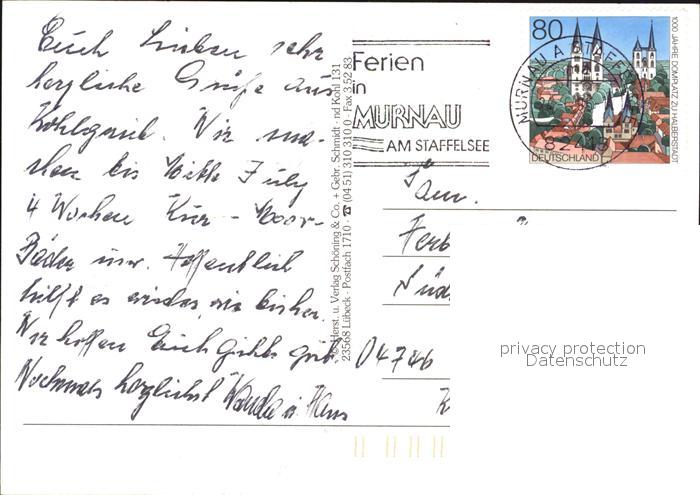 Euch Lieben sehr
herzliche Grüße aus
Kohlgrub. Wir ma-
chen bis Mitte July
4 Wochen Kur - Moor-
Bäder usw. Hoffentlich
hilft es wieder wie bisher.
Wir hoffen Euch gehts gut.
Nochmals herzlichst Wanda u. Hans
© Herst. u. Verlag Schöning & Co. + Gebr. Schmidt · nd Kohl 131
23568 Lübeck · Postfach 1710 · ☎ (04 51) 310 310 0 · Fax 3 52 83
Ferien
in
MURNAU
AM STAFFELSEE
80
1000 JAHRE DOMPLATZ ZU HALBERSTADT
DEUTSCHLAND
MURNAU A STAFFELSEE
Fam.
Herb
04746
K
privacy protection
Datenschutz